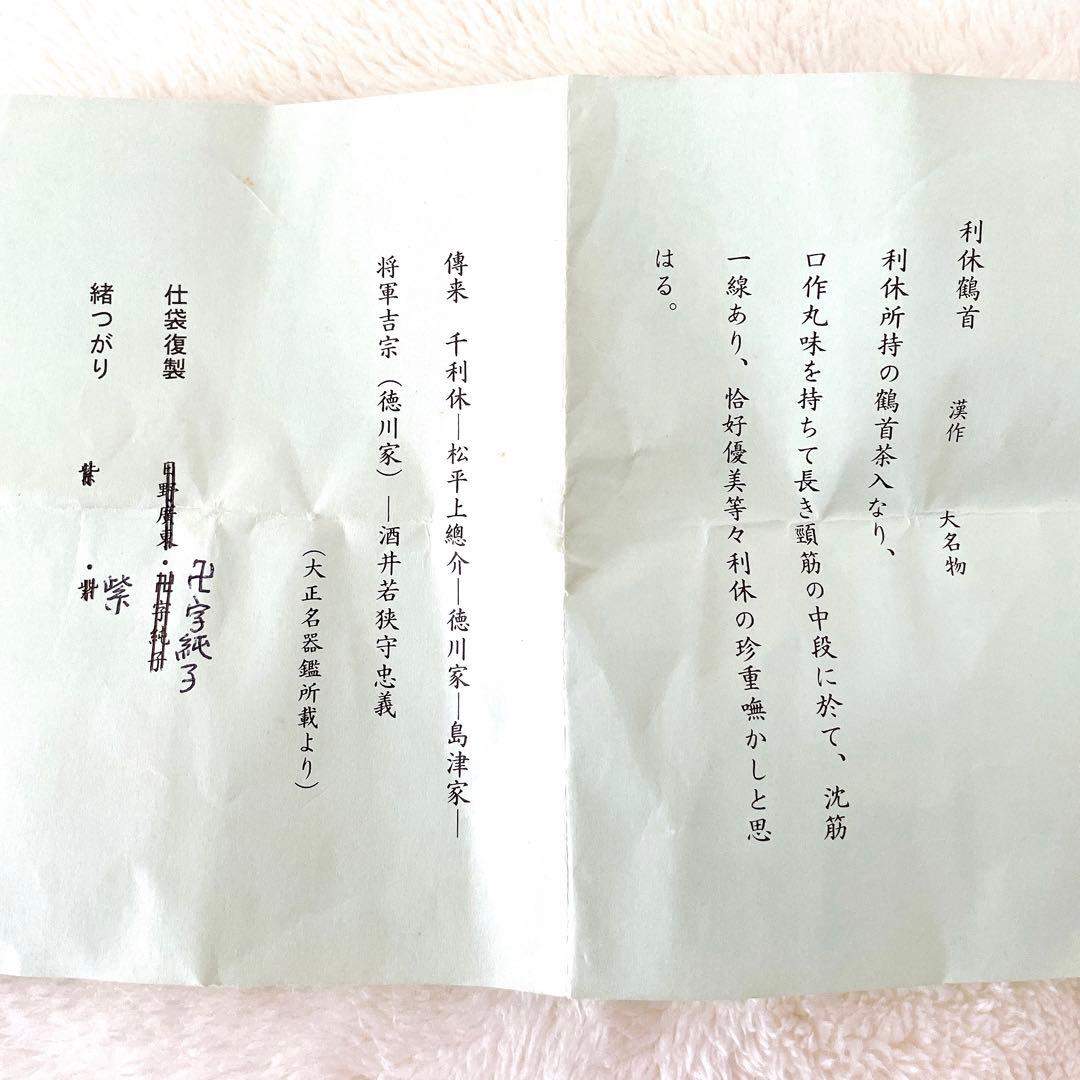 利休鶴首　漢作　大名物
利休所持の鶴首茶入なり、
口作丸味を持ちて長き頸筋の中段に於て、沈筋
一線あり、恰好優美等々利休の珍重嘸かしと思
はる。
傳来　千利休―松平上總介―徳川家―島津家―
将軍吉宗（徳川家）―酒井若狭守忠義
（大正名器鑑所載より）
仕袋復製　日野廣東・卍字純子
卍字純子
緒つがり　紫・
紫